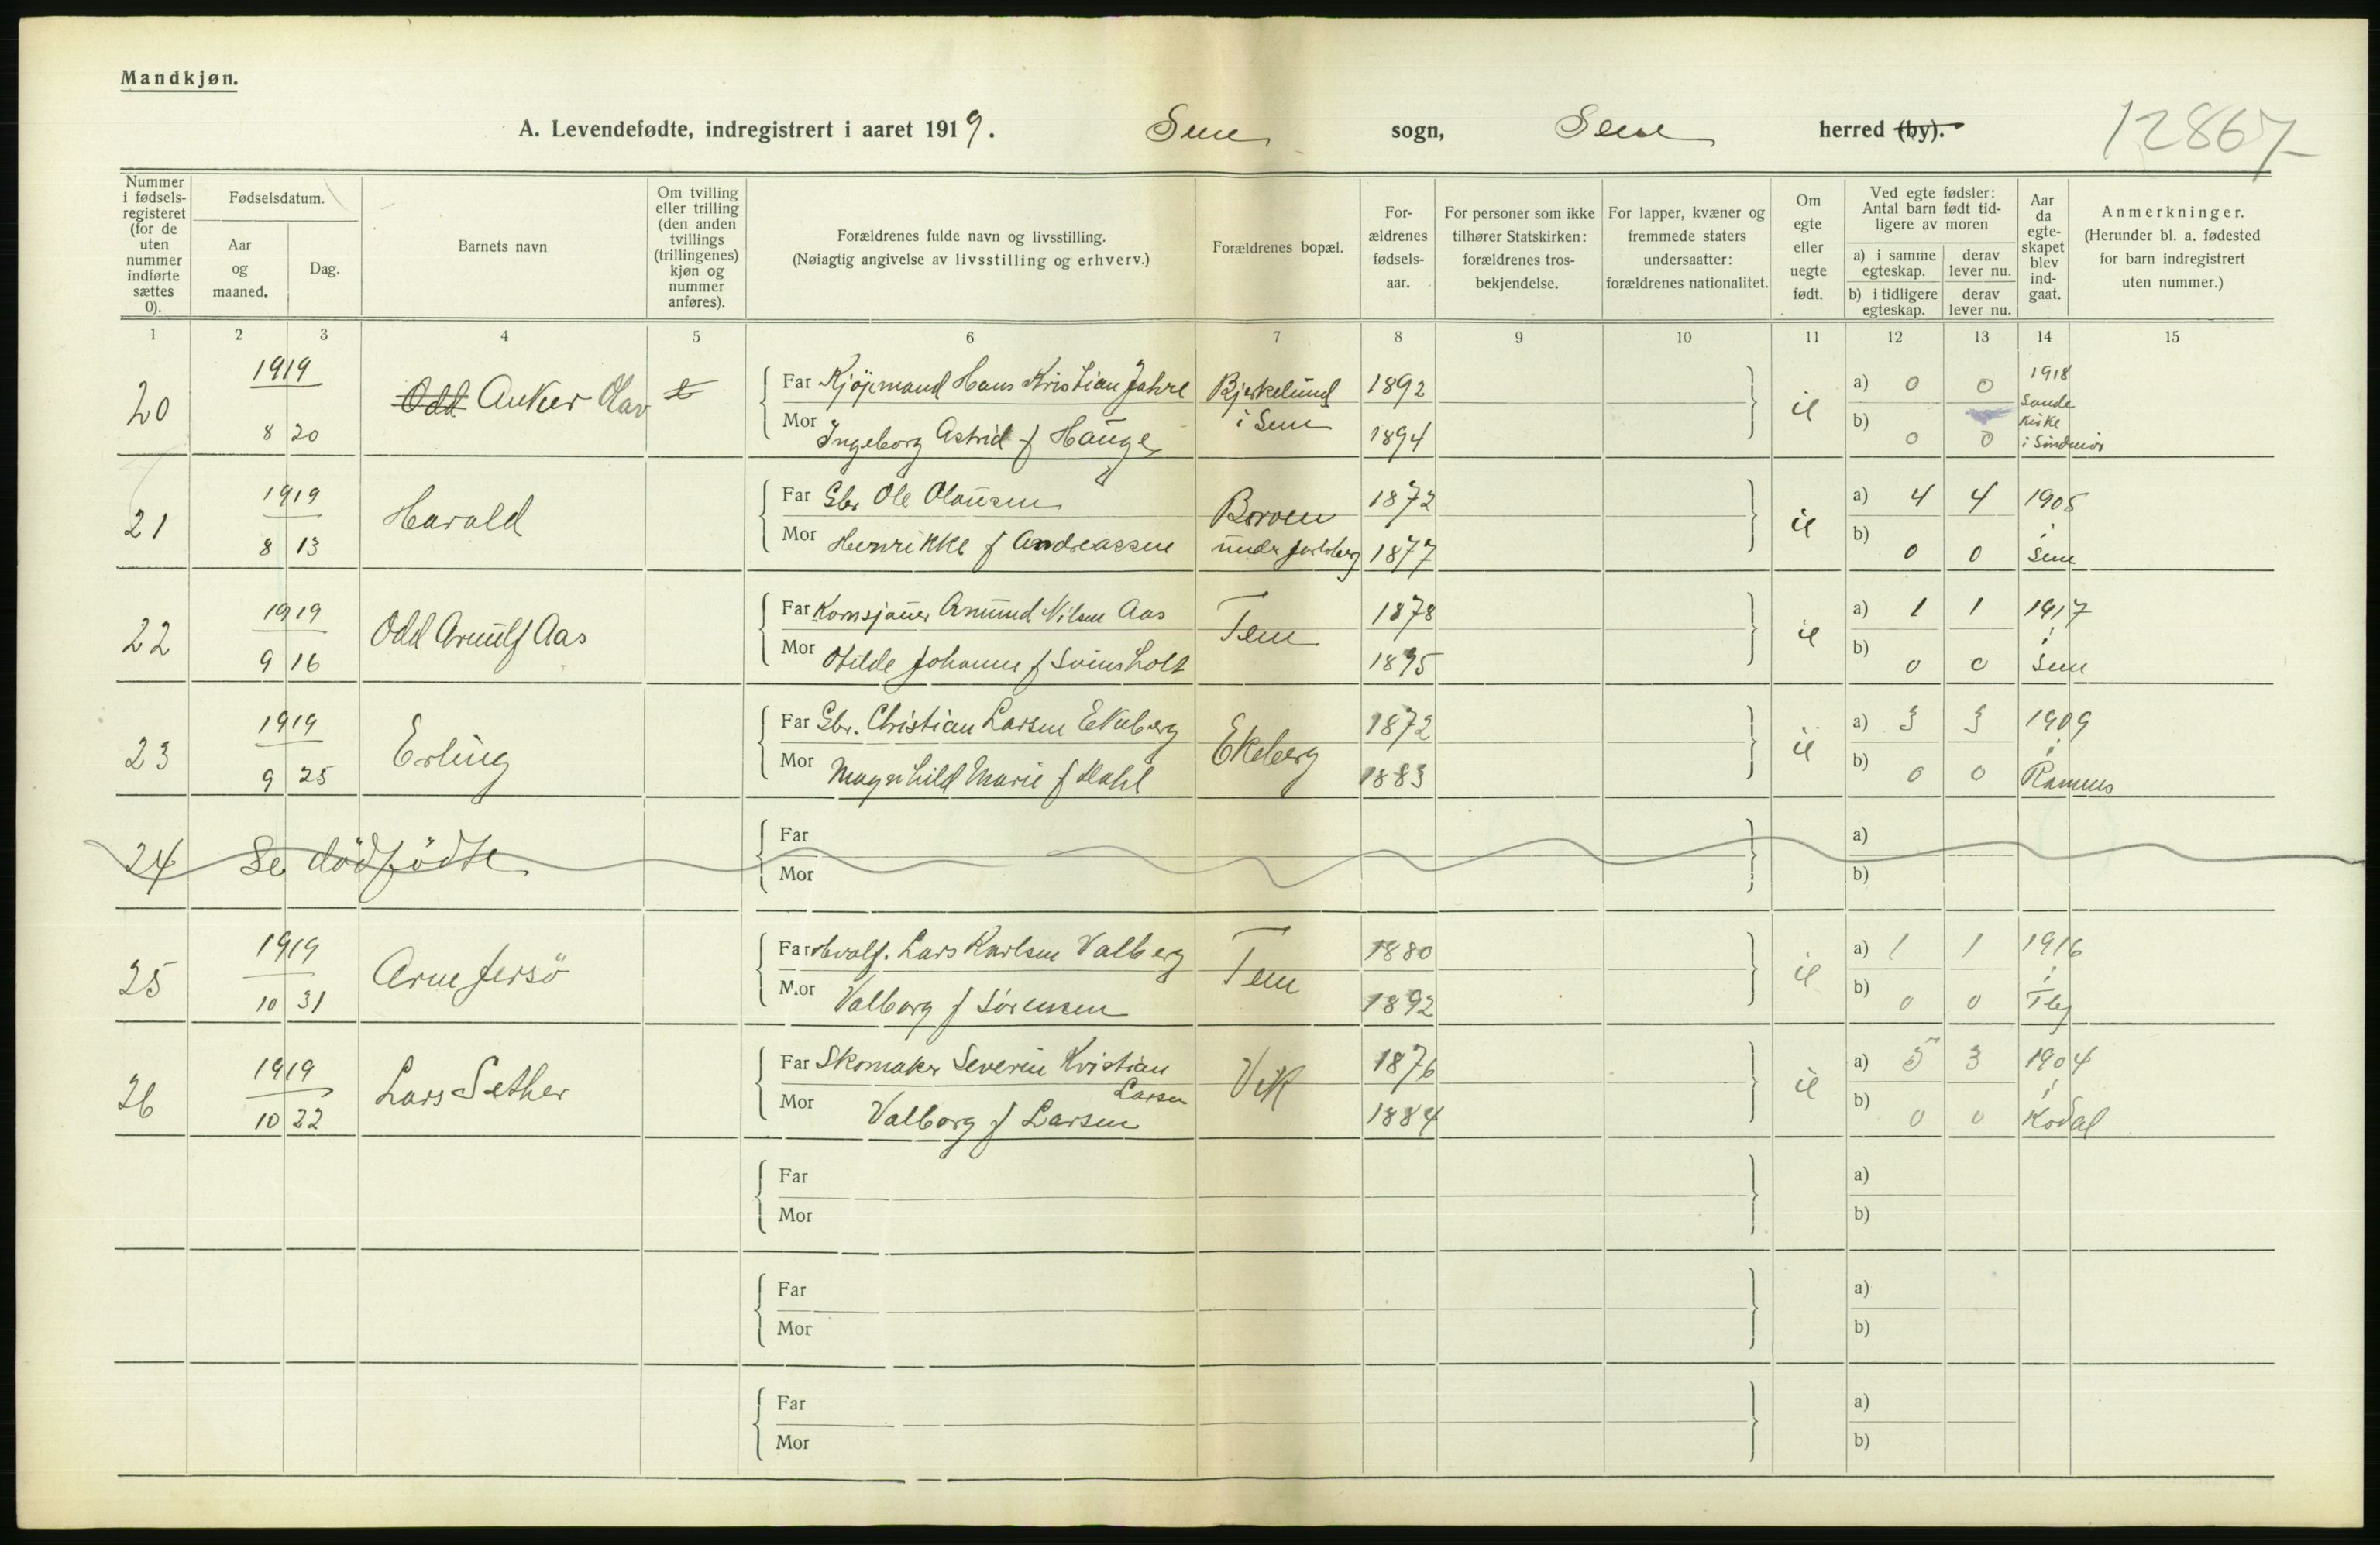 Mandkjøn.
A. Levendefødte, indregistrert i aaret 1919. Sem sogn, Sem herred (by). 12867
Nummer i fødsels-registeret (for de uten nummer indførte sættes 0).
Fødselsdatum.
Aar og maaned.
Dag.
Barnets navn
Om tvilling eller trilling (den anden tvillings (trillingenes) kjøn og nummer anføres).
Forældrenes fulde navn og livsstilling.
(Nøiagtig angivelse av livsstilling og erhverv.)
Forældrenes bopæl.
For-ældrenes fødsels-aar.
For personer som ikke tilhører Statskirken: forældrenes tros-bekjendelse.
For lapper, kvæner og fremmede staters undersaatter: forældrenes nationalitet.
Om egte eller uegte født.
Ved egte fødsler: Antal barn født tid-ligere av moren
a) i samme egteskap.
derav lever nu.
b) i tidligere egteskap.
derav lever nu.
Aar da egte-skapet blev ind-gaat.
Anmerkninger.
(Herunder bl. a. fødested for barn indregistrert uten nummer.)
1 2 3 4 5 6 7 8 9 10 11 12 13 14 15
20 1919 8 20 Odd Anker Olav t
Far Kjøpmand Hans Kristian Jahre Bjerkelund 1892 a) 0 0 1918
Mor Ingeborg Astrid f Hauge i Sem 1894 b) 0 0 Sande Kirke i Søndmør
21 1919 8 13 Harald
Far Gbr Ole Olausen Borven 1872 a) 4 4 1905
Mor Henrikke f Andreassen under Jarlsberg 1877 b) 0 0 i Sem
22 1919 9 16 Odd Arnulf Aas
Far Amund Nilsen Aas Tem 1878 a) 1 1 1917
Mor Otilde Johanne f Svinsholt 1895 b) 0 0 i Sem
23 1919 9 25 Erling
Far Gbr. Christian Larsen Ekeberg Ekeberg 1872 a) 3 3 1909
Mor Magnhild Marie f Dahl 1883 b) 0 0 i Ramnes
24 Se dødfødte
Far a)
Mor b)
25 1919 10 31 Arne Jersö
Far Hvalf. Lars Karlsen Valberg Tem 1880 a) 1 1 1916
Mor Valborg f Sørensen 1892 b) 0 0 i Tbg
26 1919 10 22 Lars Sether
Far Skomaker Severin Kristian Larsen Vik 1876 a) 5 3 1904
Mor Valborg f Larsen 1884 b) 0 0 i Kodal
Far a)
Mor b)
Far a)
Mor b)
Far a)
Mor b)